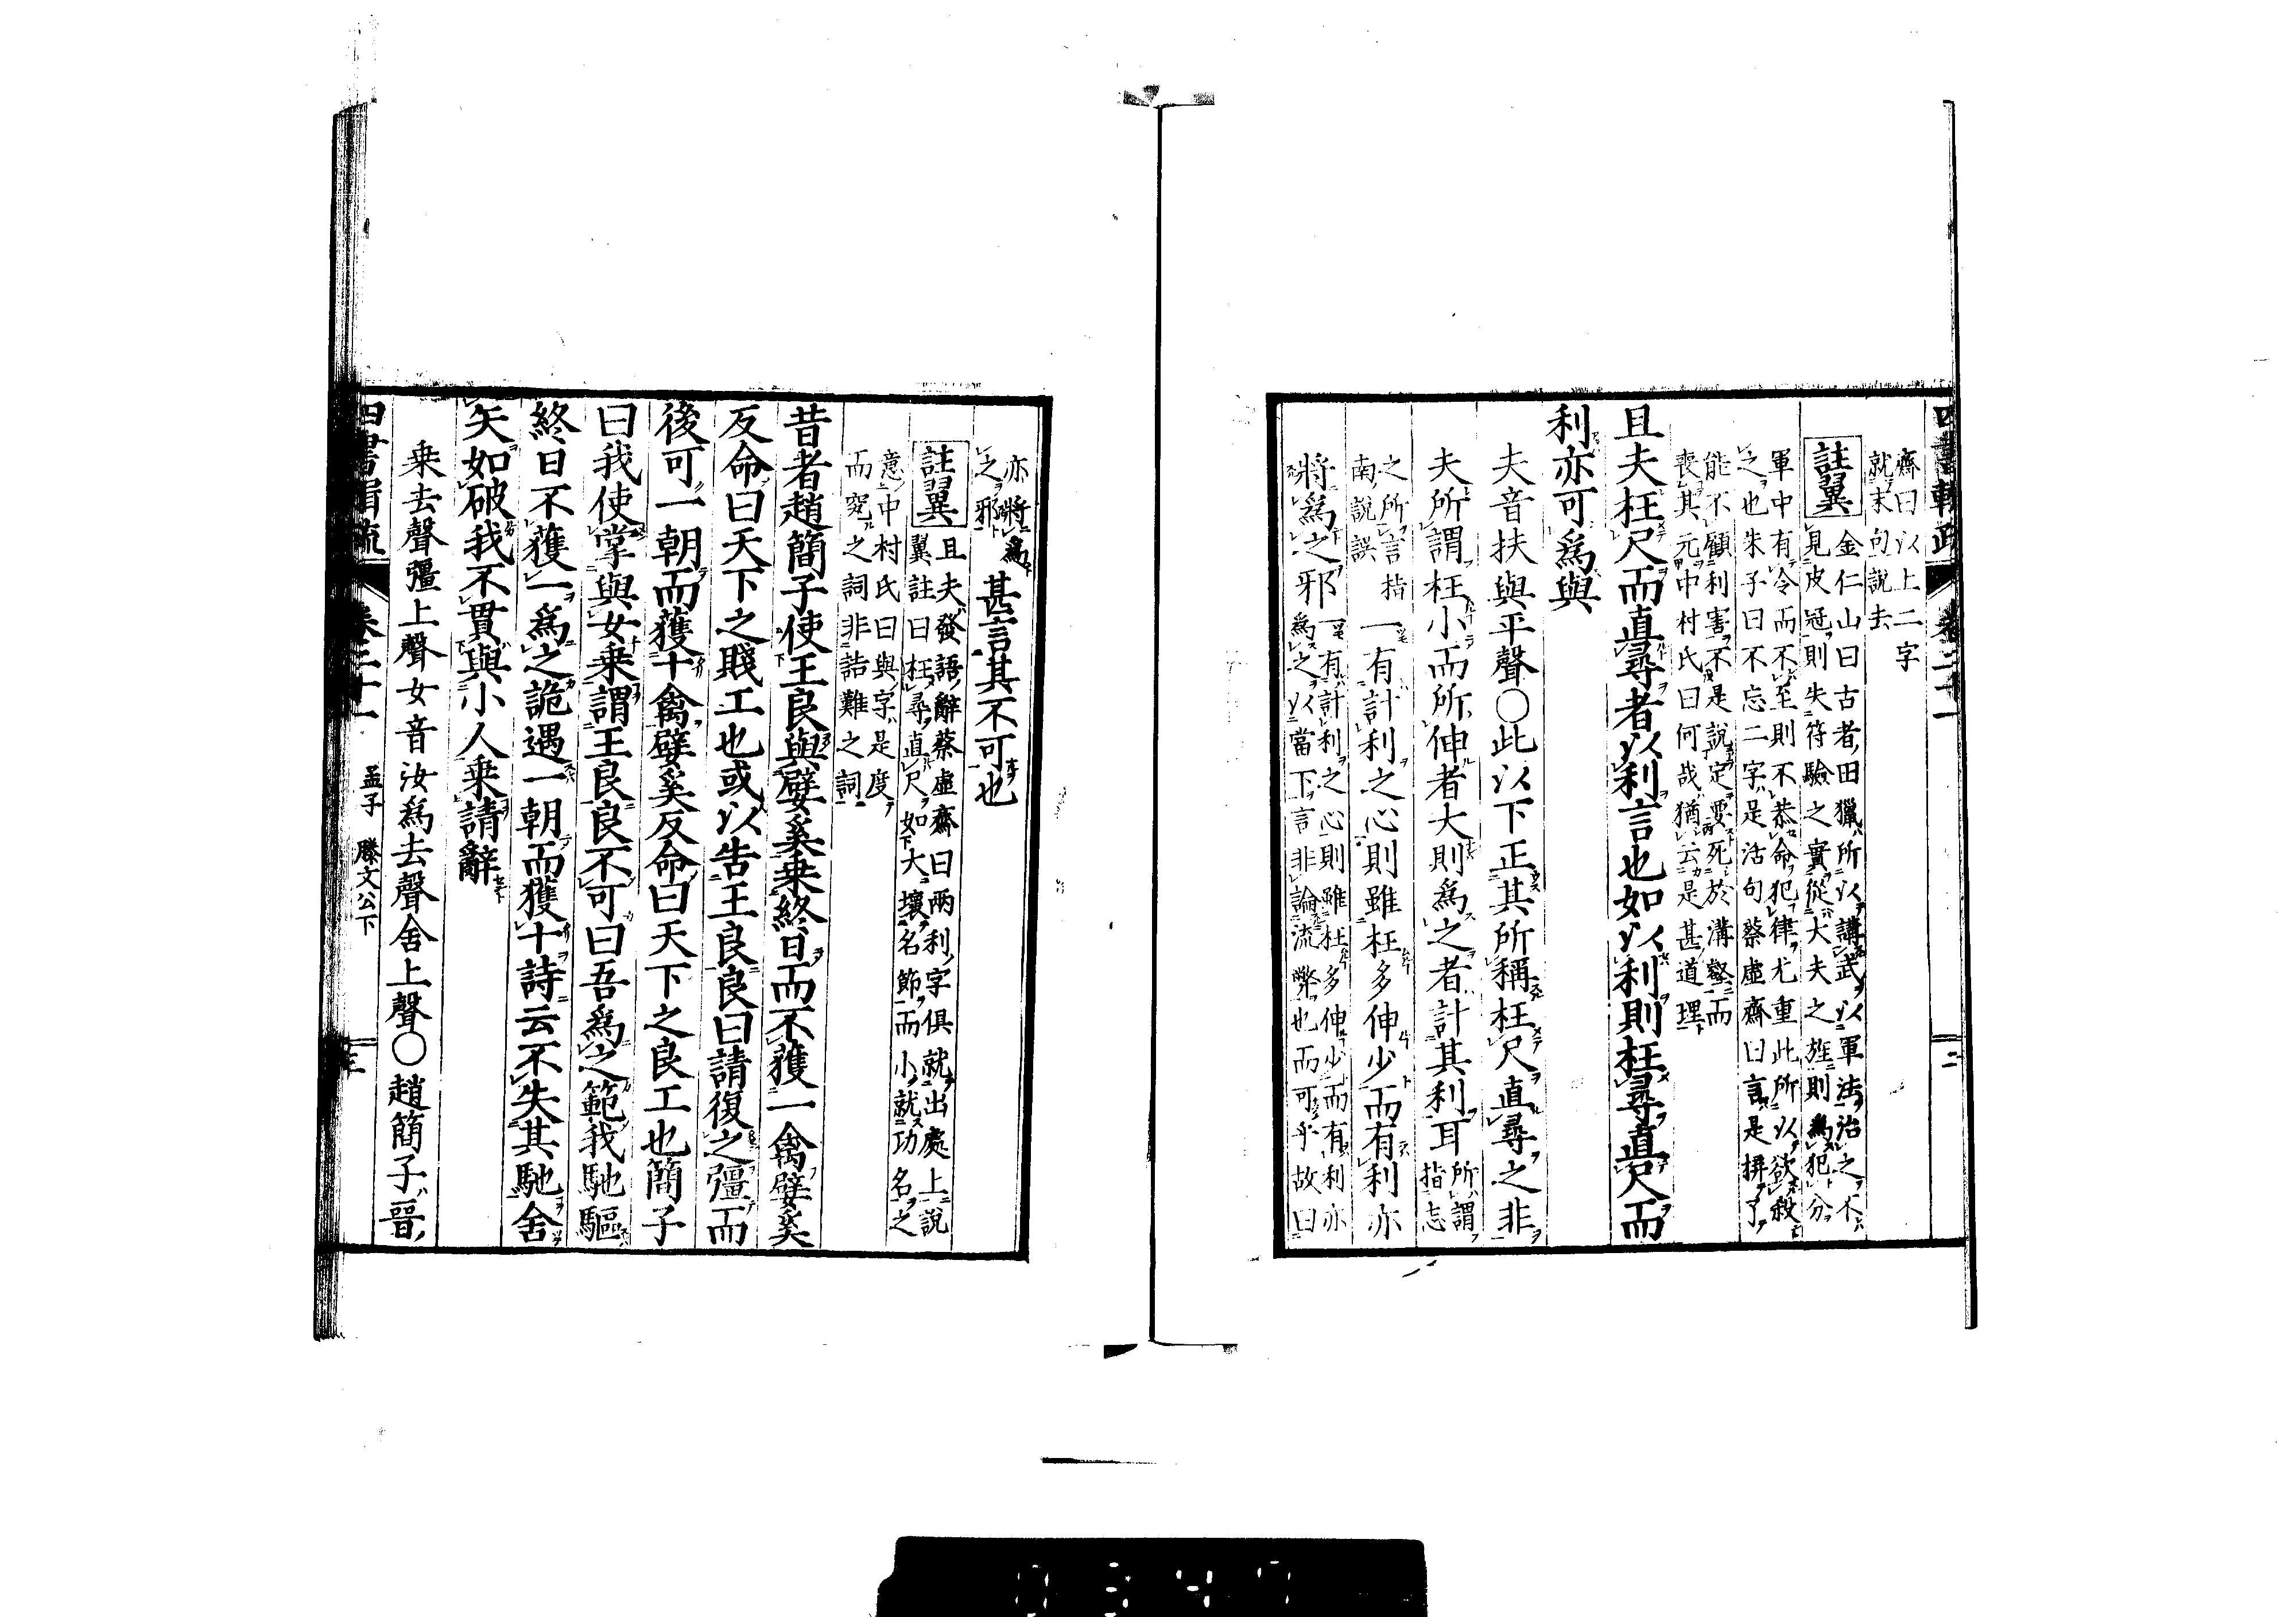 齋曰以上二字
就末句說去
註翼
金仁山曰古者田獵所以講武以軍法治之不
見皮冠則失符驗之實從大夫之旌則為犯分
軍中有令而不至則不恭命犯律尤重此所以欲殺
之也朱子曰不忘二字是活句蔡虛齋曰言是拚了
能不顧利害不是說定要死於溝壑而
喪其元中村氏曰何哉猶云是甚道理
且夫枉尺而直尋者以利言也如以利則枉尋直尺而
利亦可爲與
夫音扶與平聲〇此以下正其所稱枉尺直尋之非
夫所謂枉小而所伸者大則爲之者計其利耳
所謂
指志
之所言指
南說誤
一有計利之心則雖枉多伸少而有利亦
將爲之邪
一有計利之心則雖枉多伸少而有利亦
爲之以當下言非論流弊也而可乎故曰
亦將爲
之邪
甚言其不可也
註翼
且夫發語辭蔡虛齋曰兩利字俱就出處上說
翼註曰枉尋直尺如大壞名節而小就功名之
意中村氏曰與字是度
而究之詞非詰難之詞
昔者趙簡子使王良與嬖奚乗終日而不獲一禽嬖奚
反命曰天下之賤工也或以告王良良曰請復之彊而
後可一朝而獲十禽嬖奚反命曰天下之良工也簡子
曰我使掌與女乗謂王良良不可曰吾爲之範我馳驅
終日不獲一爲之詭遇一朝而獲十詩云不失其馳舍
矢如破我不貫與小人乗請辭
乗去聲彊上聲女音汝爲去聲舍上聲〇趙簡子晉
卷二十一
孟子
滕文公下
三